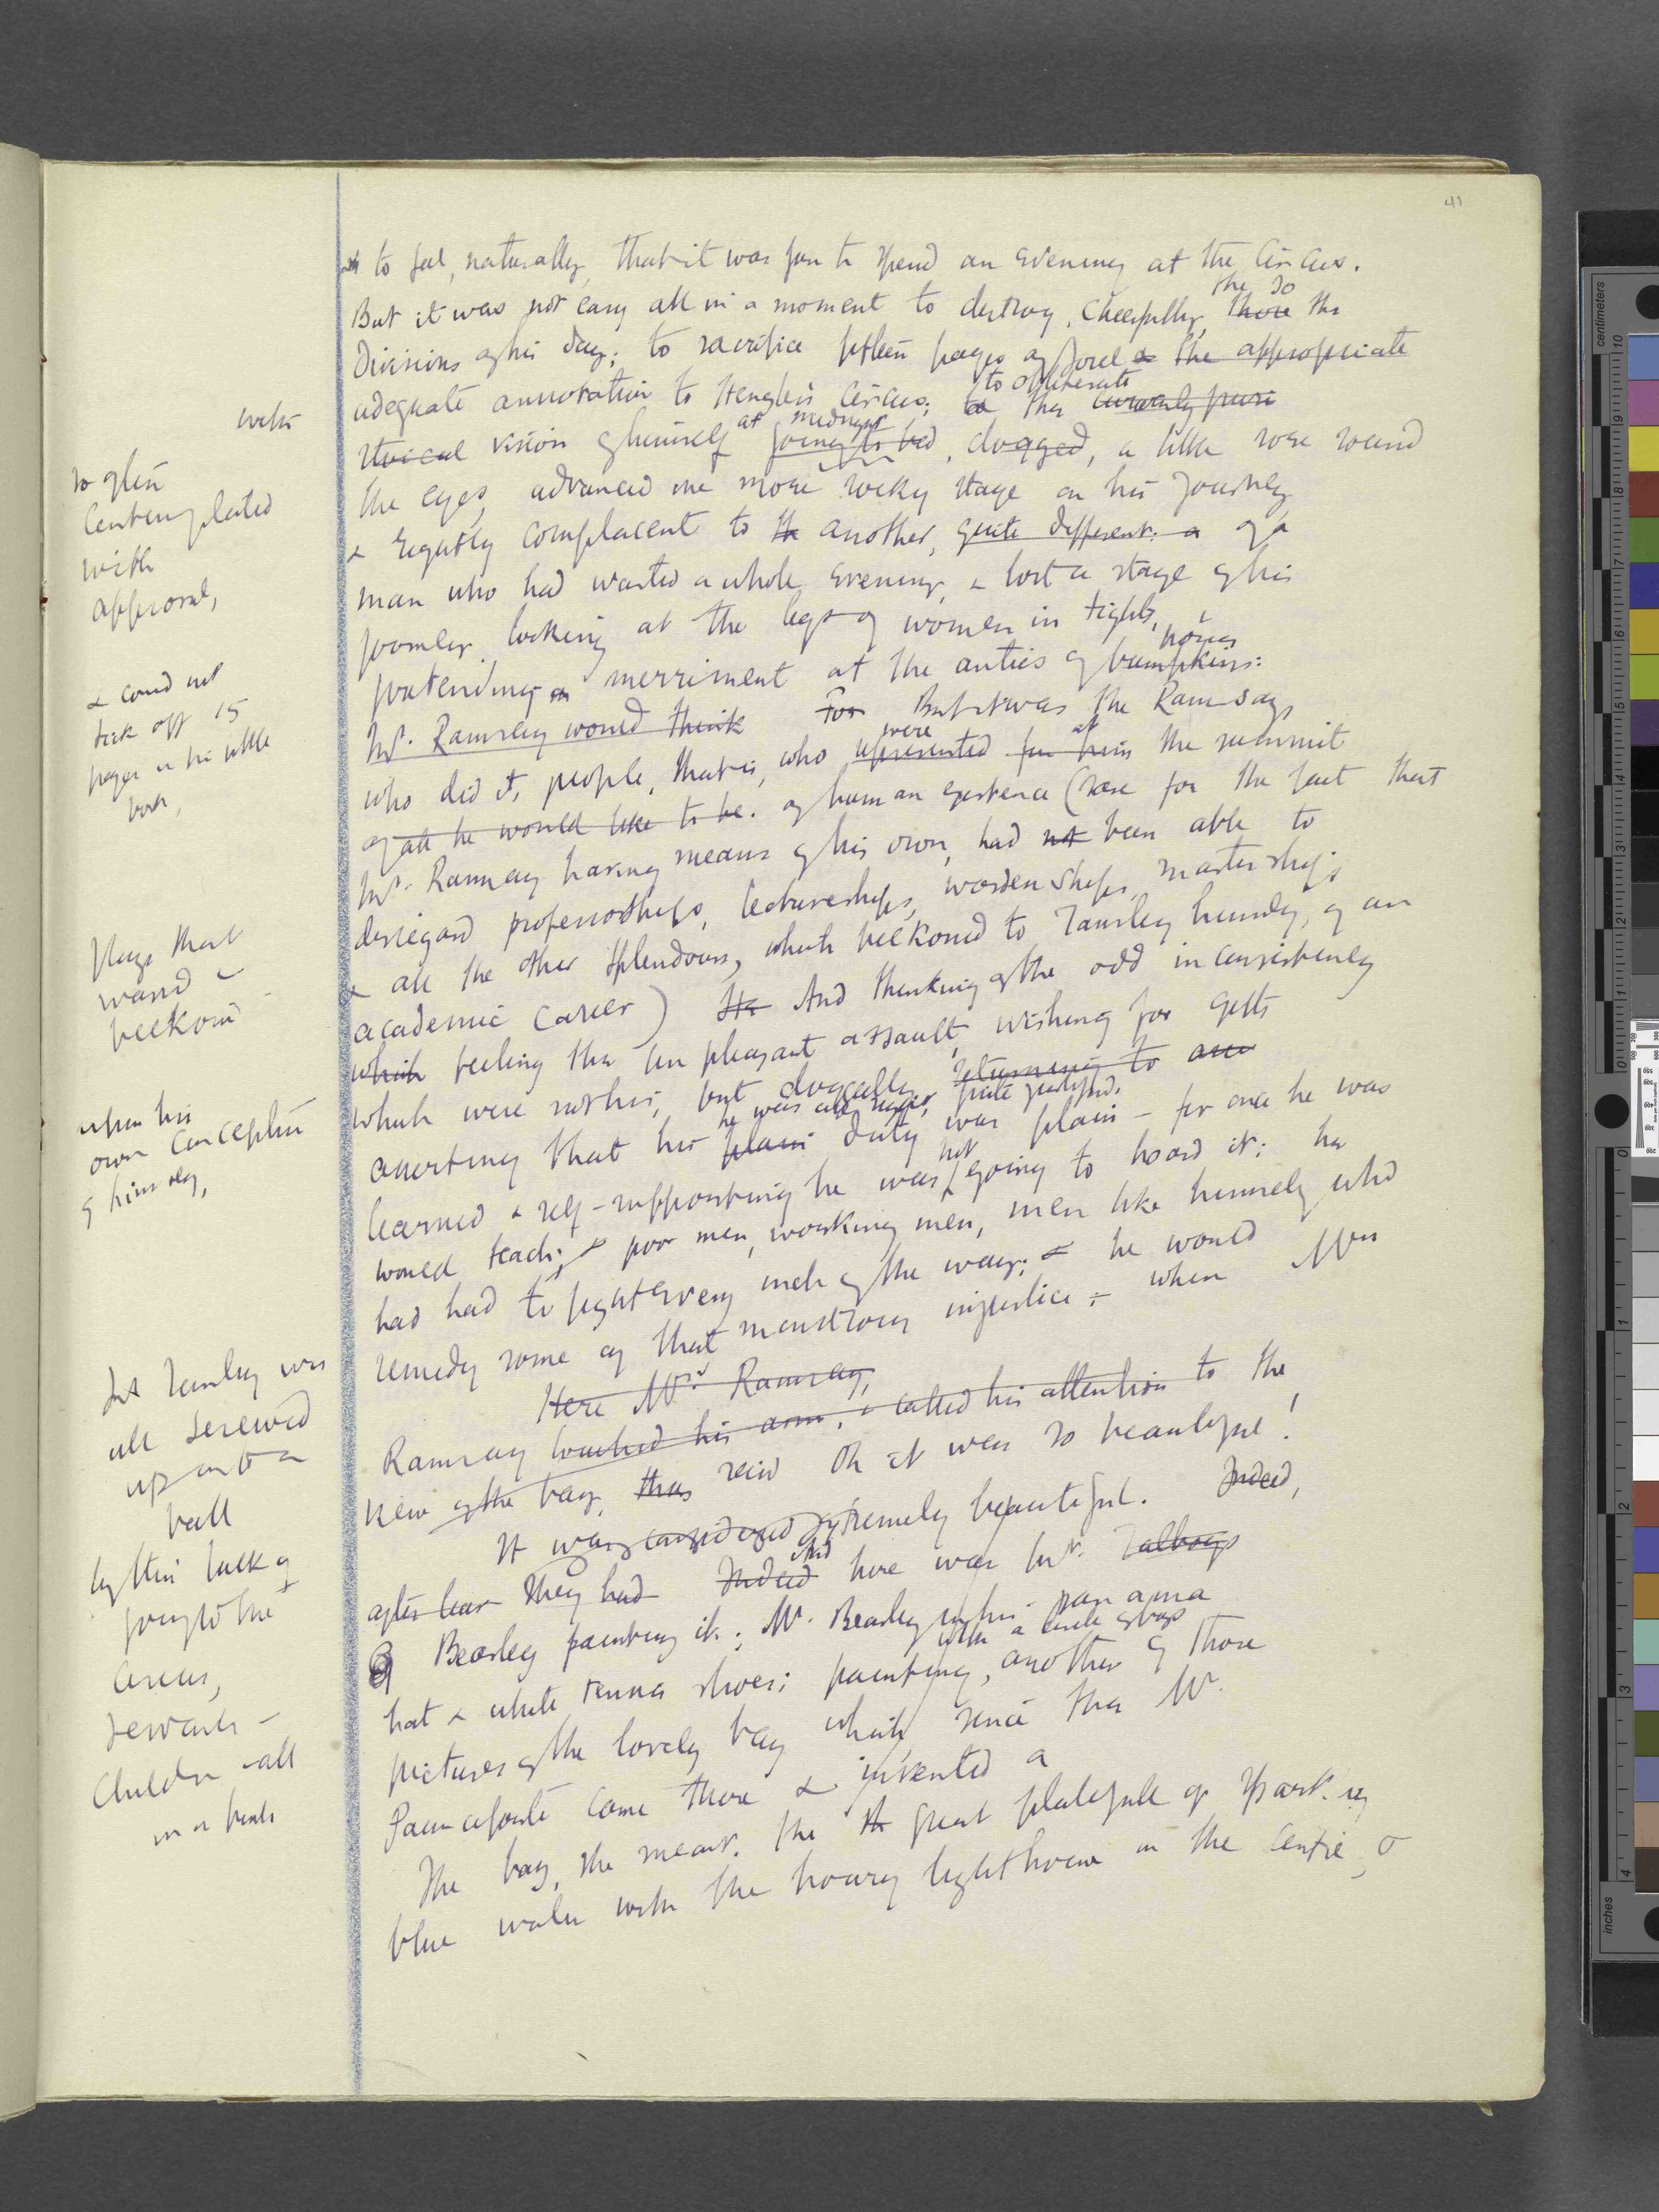 41
& to feel, naturally, that it was fun to spend an evening at the Circus.
the so
But it was not easy all in a moment to destroy, cheerfully, those the
Divisions of his day; to sacrifice fifteen pages of & the appropriate
to obliterate
adequate annotation to Hengler's Circus; to the
with
at midnight
stoical vision of himself going to bed, dogged, a little sore round
so often
contemplated
with
approval,
the eyes, advanced one more rocky stage on his journey
& rightly complacent to the another, quite different: a of a
man who had wasted a whole evening, & lost a stage of his
journey looking at the legs of women in tights, &
horses
pretending merriment at the antics of bumpkins:
& could not
tick off 15
pages in his little
book,
Mr. Ramsay would think For But it was the Ramsays
were at
who did it, people, that is, who represented for him the summit
of all he would like to be. of human existence (save for the fact that
Mr. Ramsay having means of his own, had not been able to
disregard professorships, lectureships, wardenships, masterships
& all the other splendours, which beckoned to Tansley humbly, of an
flags that
waved &
beckoned
academic career) He And thinking of the odd inconsistency
which feeling the unpleasant assault, wishing for gifts
which were not his, but doggedly, returning to
he was all right, quite justified.
upon his
own conception
of himself,
asserting that his plain duty was plain - for once he was
not
learned & self-supporting he was going to hoard it; he
would teach; & poor men, working men, men like himself who
had had to fight every inch of the way; & he would
remedy some of that monstrous injustice; - when Mrs
Here Mrs Ramsay,
Ramsay touched his arm, & called his attention to the
view of the bay, thus said Oh it was so beautiful!
But Tansley was
all screwed
up into a
ball
by this talk of
going to the
circus,
rewards -
Children - all
in a bunch
It was considered extremely beautiful. Indeed,
And
after tea they had Indeed here was Mr.
Bearley painting it; Mr. Bearley in his panama
with a circle of boys
hat & white tennis shoes; painting, another of those
pictures of the lovely bay which, since the Mr.
Paunceforte came there & invented a
The bay, she meant. The th great plateful of
blue water with the hoary lighthouse in the centre,